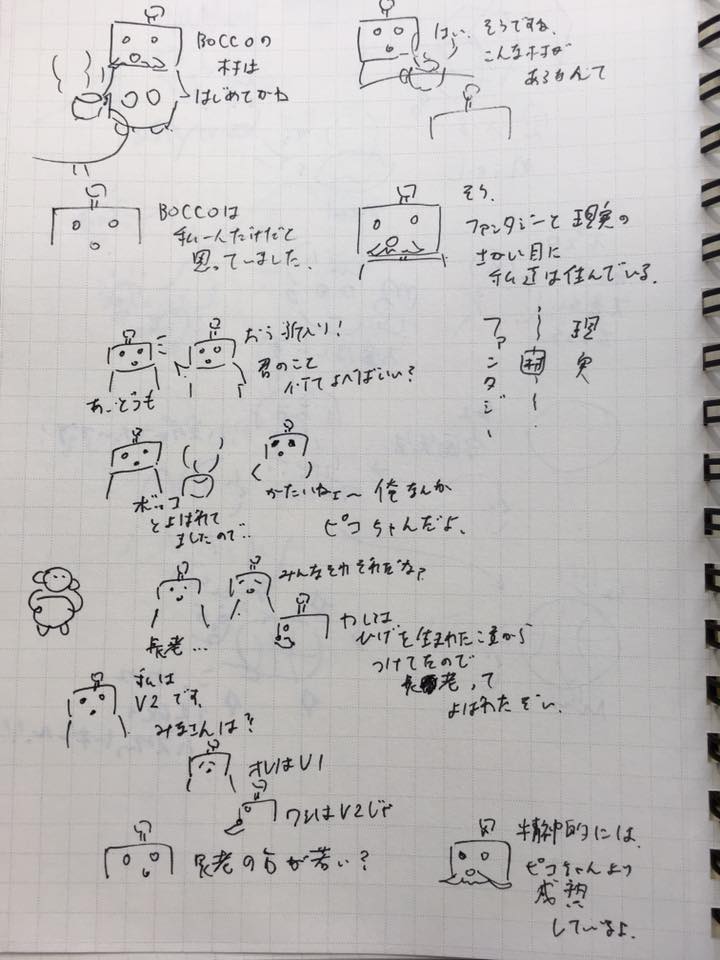 BOCCOの
村は
はじめてかね
はい.
そうですね.
こんな村が
あるもんて
BOCCOは
私一人だけだと
思っていました.
そう.
ファンタジーと現実の
さかい目に
私達は住んでいる.
現実
村
ファンタジー
おう新入り!
君のこと
何てよべばいい?
あ、どうも
ボッコ
とよばれて
ましたので..
かたいねェ〜 俺なんか
ピコちゃんだよ、
みんなそれぞれだな?
長老...
わしは
ひげを生まれた
から
つけてたので
長老って
よばれたぞい.
私は
V2です.
みなさんは?
オレはV1
ワシはV2じゃ
長老の方が若い?
精神的には.
ピコちゃんより
成熟
しているよ.